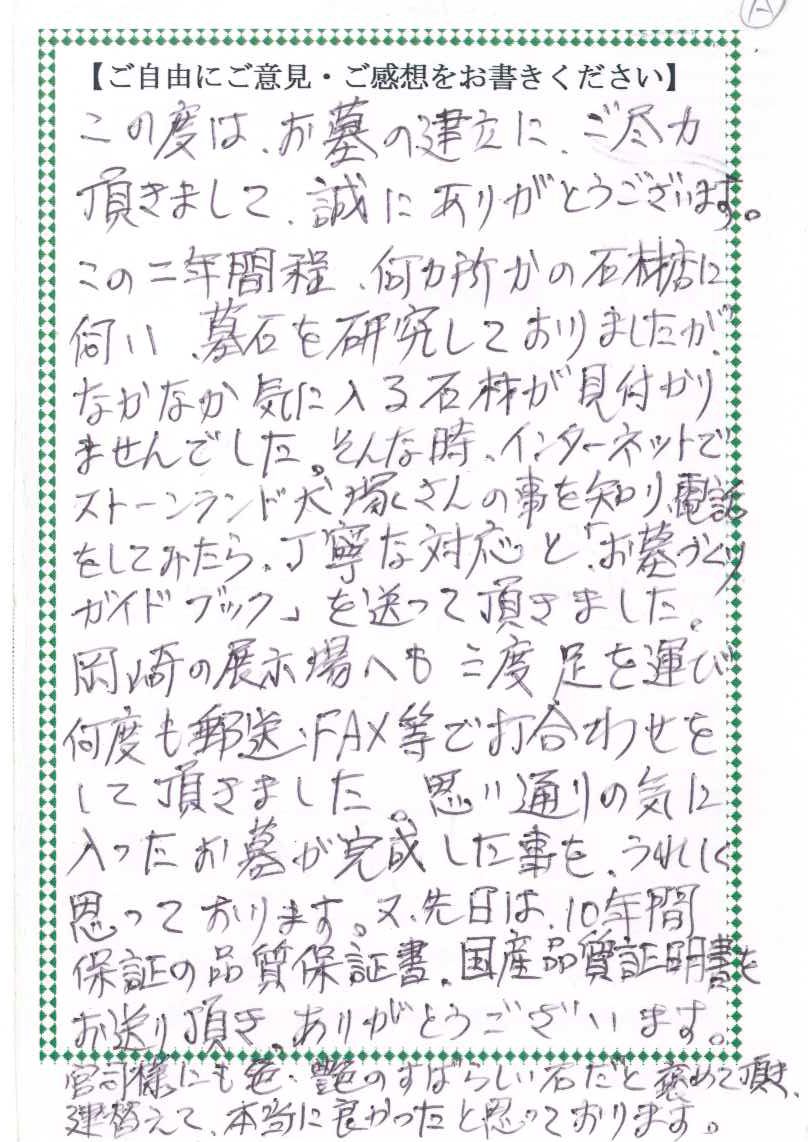 A
【ご自由にご意見・ご感想をお書きください】
この度は、お墓の建立に、ご尽力
頂きまして、誠にありがとうございます。
この二年間程、何カ所かの石材店に
伺い、墓石を研究しておりましたが、
なかなか気に入る石材が見付かり
ませんでした。そんな時、インターネットで
ストーンランド犬塚さんの事を知り、電話
をしてみたら、丁寧な対応と「お墓づくり
ガイドブック」を送って頂きました。
岡崎の展示場へも二度足を運び
何度も郵送、FAX等で打合わせを
して頂きました。思い通りの気に
入ったお墓が完成した事を、うれしく
思っております。又、先日は、10年間
保証の品質保証書、国産品質証明書を
お送り頂き、ありがとうございます。
宮司様にも色・艶のすばらしい石だと褒めて頂き、
建替えて、本当に良かったと思っております。